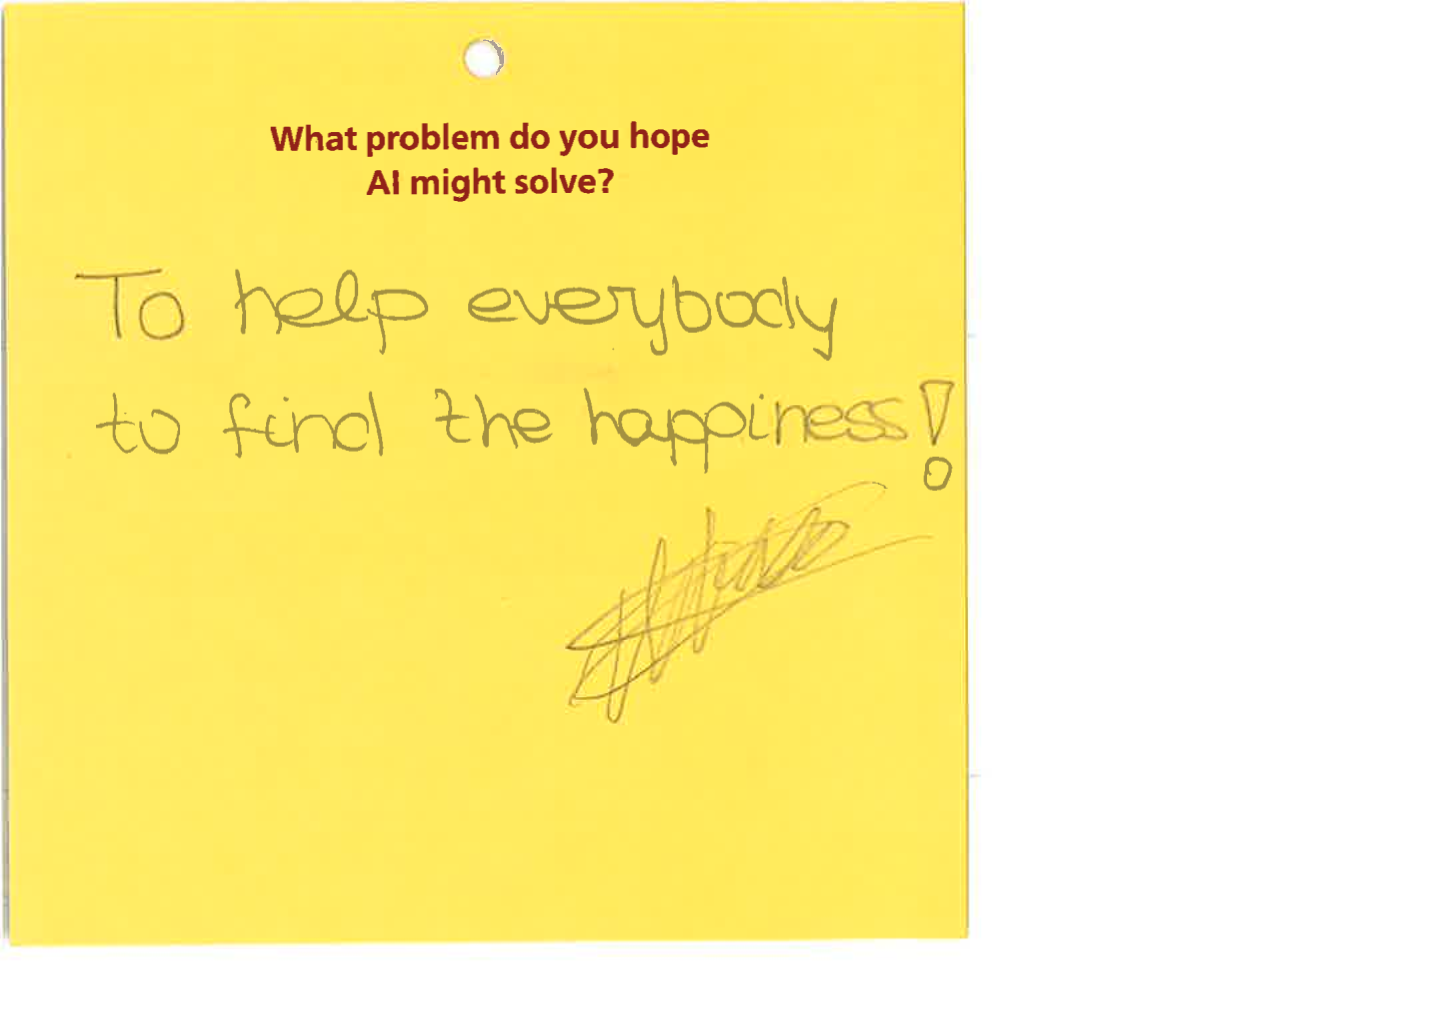 What problem do you hope
AI might solve?
To help everybody
to find the happiness!